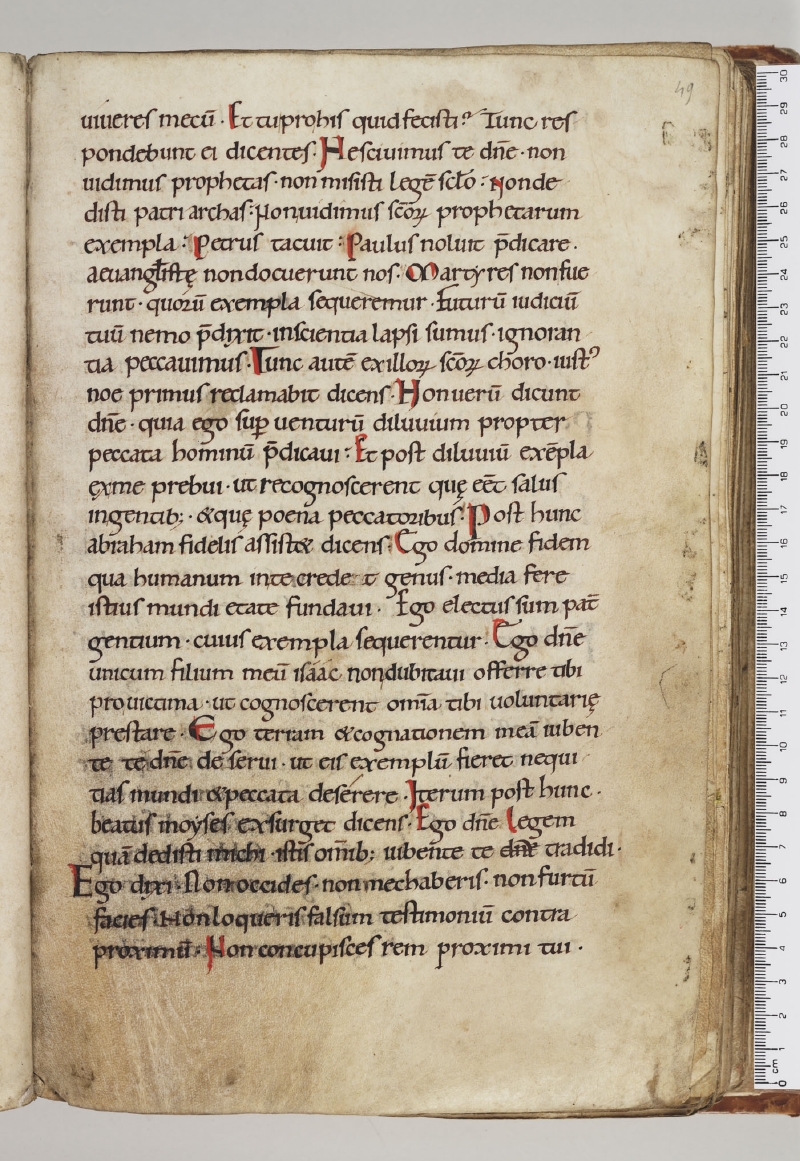 49
uiueres mecū · Et tu pro his quid fecisti? Tunc res
pondebunt ei dicentes · Nesciuimus te dn̄e · non
uidimus prophetas · non misisti legē sc̄lo : Non de
disti patriarchas : Non uidimus sc̄oꝝ prophetarum
exempla : Petrus tacuit : Paulus noluit p̄dicare ·
aeuangl̄istę non docuerunt nos · Martyres non fue
runt · quorū exempla sequeremur · Futurū iudiciū
tuū nemo p̄dixit · inscientia lapsi sumus · ignoran
tia peccauimus · Tunc autē ex illoꝝ sc̄oꝝ choro · iustꝰ
noe primus reclamabit dicens · Non uerū dicunt
dn̄e · quia ego suꝑ uenturū diluuium propter
peccata hominū p̄dicaui : Et post diluuiū exēpla
ex me prebui · ut recognoscerent quę eēt salus
in gentib; · &quę poena peccatoribus · Post hunc
abraham fidelis assist& dicens · Ego domine fidem
qua humanum inte crede t genus · media fere
istius mundi etate fundaui · Ego electus sum pat̄
gentium · cuius exempla sequerentur · Ego dn̄e
unicum filium meū isaac non dubitaui offerre tibi
pro uictima · ut cognoscerent om̄ia tibi uoluntarię
prestare · Ego terram &cognationem meā iuben
te te dn̄e deserui · ut eis exemplū fieret nequi
tias mundi &peccata deserere · Iterum post hunc ·
beatus moyses exsurget dicens · Ego dn̄e legem
quā dedisti michi · istis om̄ib; uibente te dn̄e tradidi ·
Ego dixi · Non occides · non mechaberis · non furtū
facies · Non loqueris falsum testimoniū contra
proximū · Non concupisces rem proximi tui ·